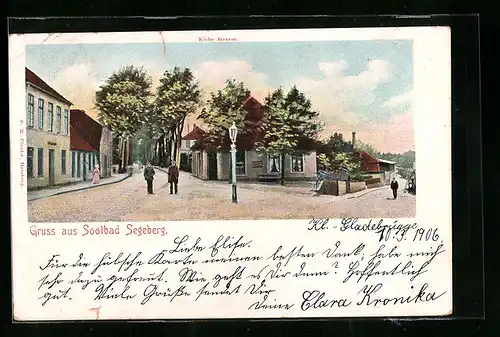 Kieler Strasse.
Gruss aus Soolbad Segeberg.
Kl. Gladebrügge
10.9.1906
Liebe Elise.
Für die hübsche Karte meinen besten Dank, habe mich
sehr dazu gefreut. Wie geht es Dir denn? Hoffentlich
gut. Viele Grüße sendet Dir
deine Clara Kronika